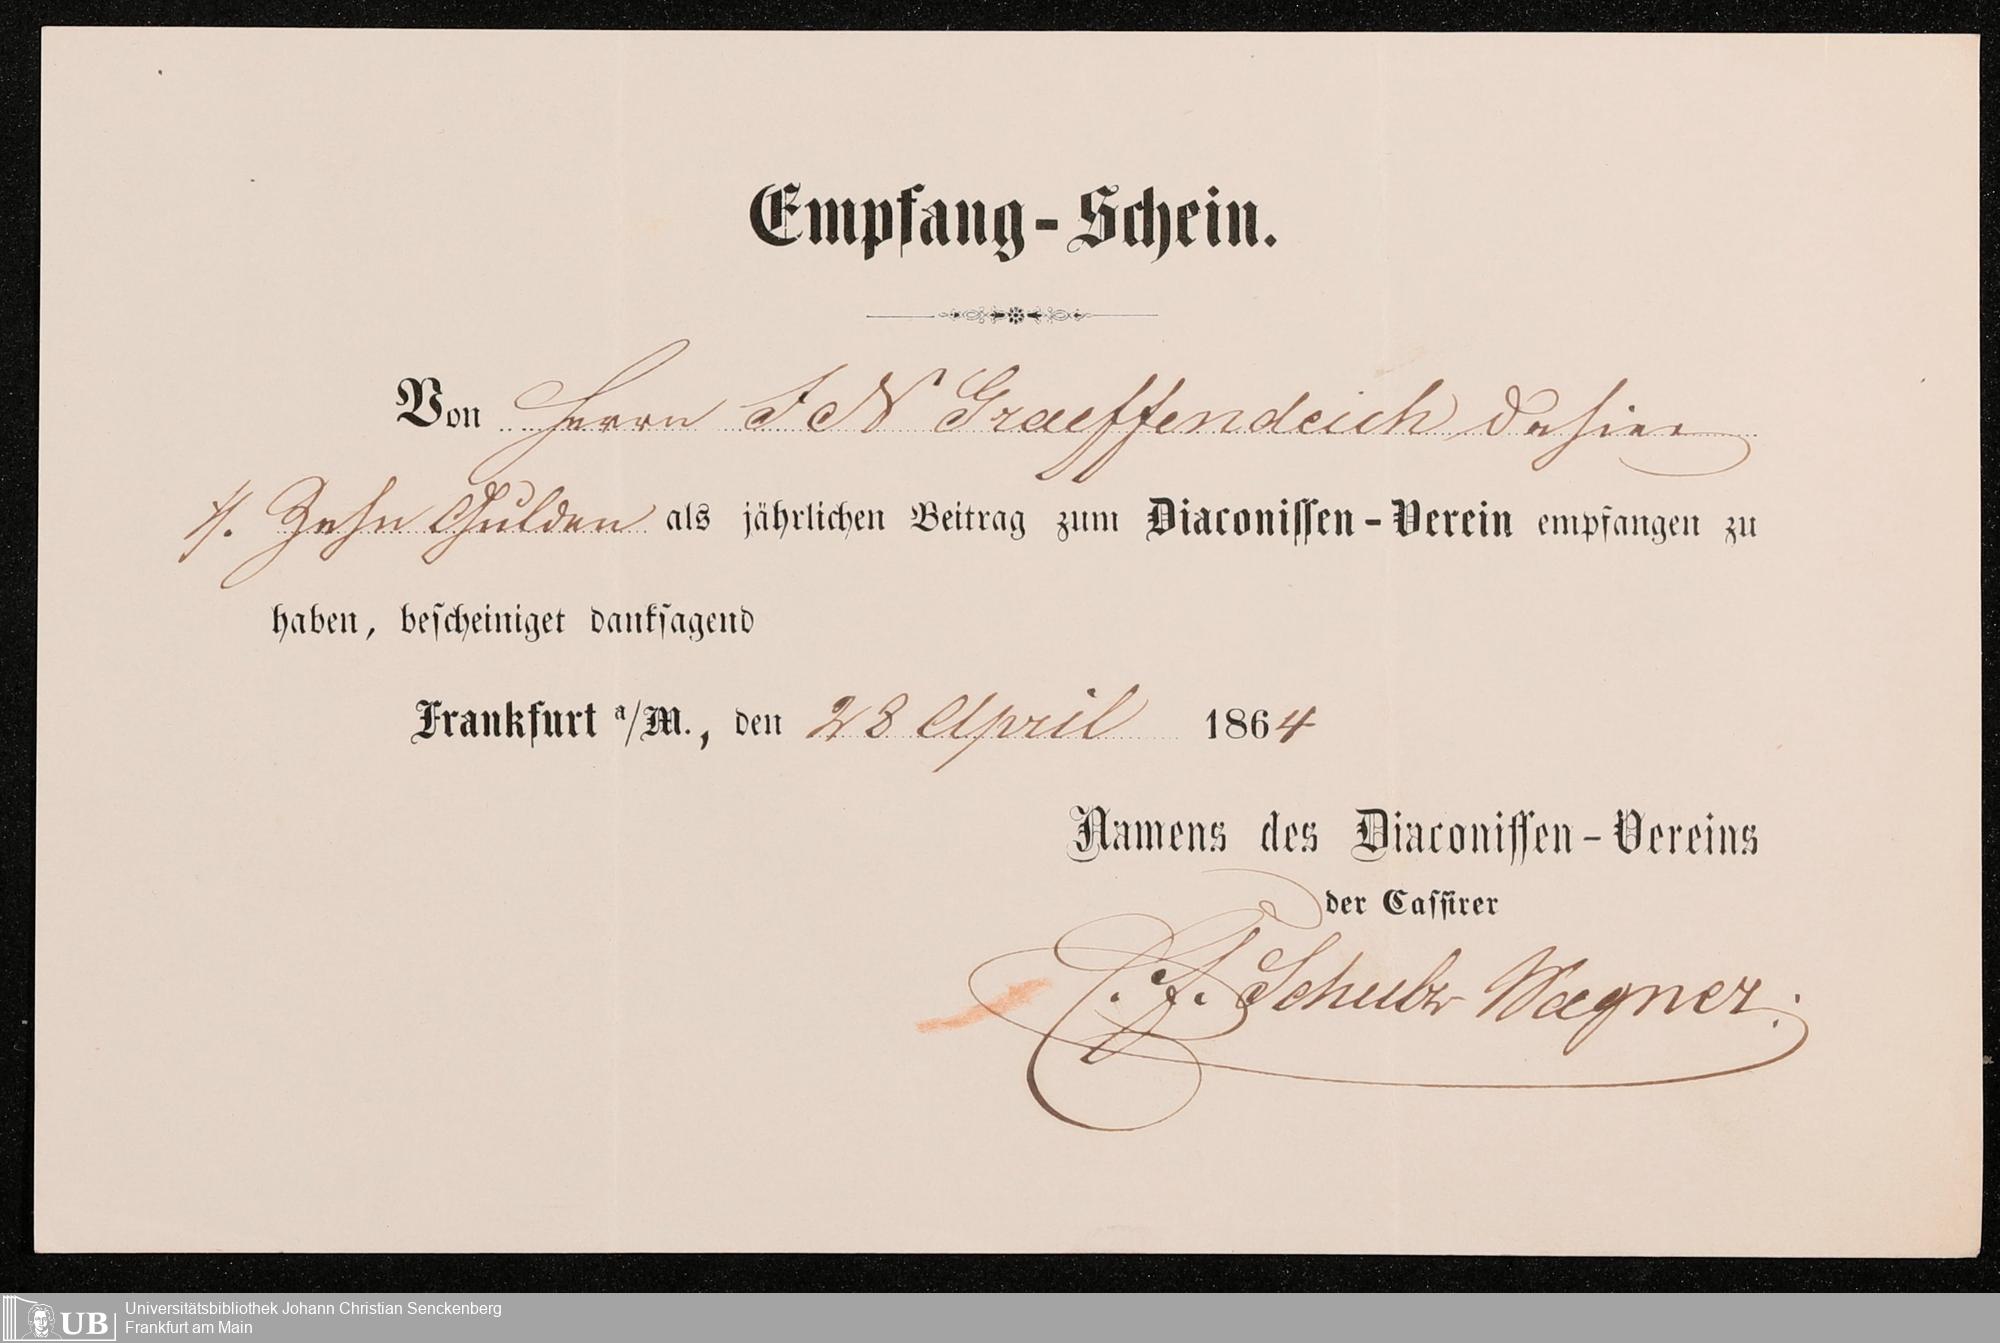 Empfang-Schein.
Von Herrn J N Graeffendeich dahier
Zehn Gulden als jährlichen Beitrag zum Diaconissen-Verein empfangen zu
haben, bescheiniget danksagend
Frankfurt a/M., den 28 April 1864
Namens des Diaconissen-Vereins
der Cassirer
F. Schulz Wagner.
UB
Universitätsbibliothek Johann Christian Senckenberg
Frankfurt am Main